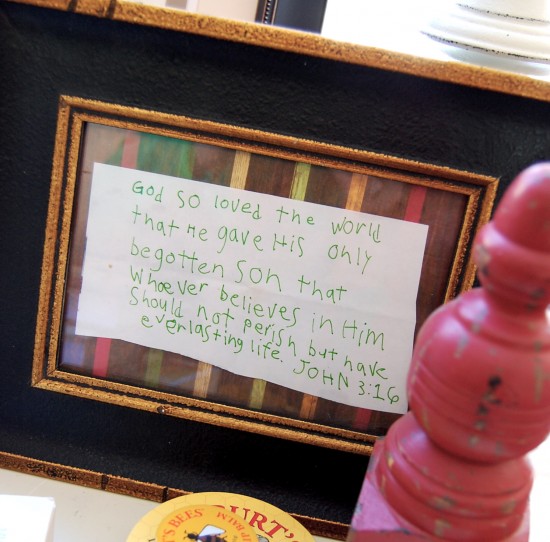 God so loved the world
that He gave His only
begotten son that
Whoever believes in Him
Should not perish but have
everlasting life. JOHN 3:16
BURT'S
T'S BEES
LIP BALM